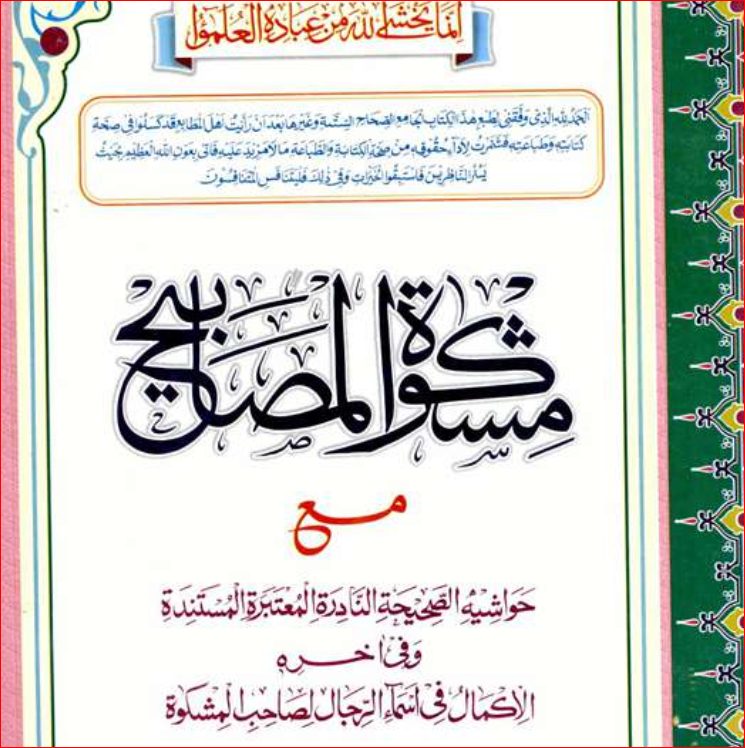 إنما يخشى الله من عباده العلمؤا
الحمد لله الذى وفقنى لطبع هذا الكتاب الجامع الصحاح الستة وغيرها بعد ان رأيت اهل المطابع قد كسلوا فى صحة
كتابته وطباعته فشمرت لاداء حقوقه من صحة الكتابة والطباعة ما لا مزيد عليه فاتى بعون الله العظيم بحيث
يسر الناظرين فاستبقوا الخيرات وفى ذلك فليتنافس المتنافسون
مِشكوة المصابيح
مع
حَوَاشِيهِ الصَّحِيْحَةِ النَّادِرَةِ الْمُعْتَبَرَةِ الْمُسْتَنِدَةِ
وَفِى اٰخره
الْاِكْمَالُ فِى اَسْمَاءِ الرِّجَالِ لِصَاحِبِ الْمِشْكٰوة